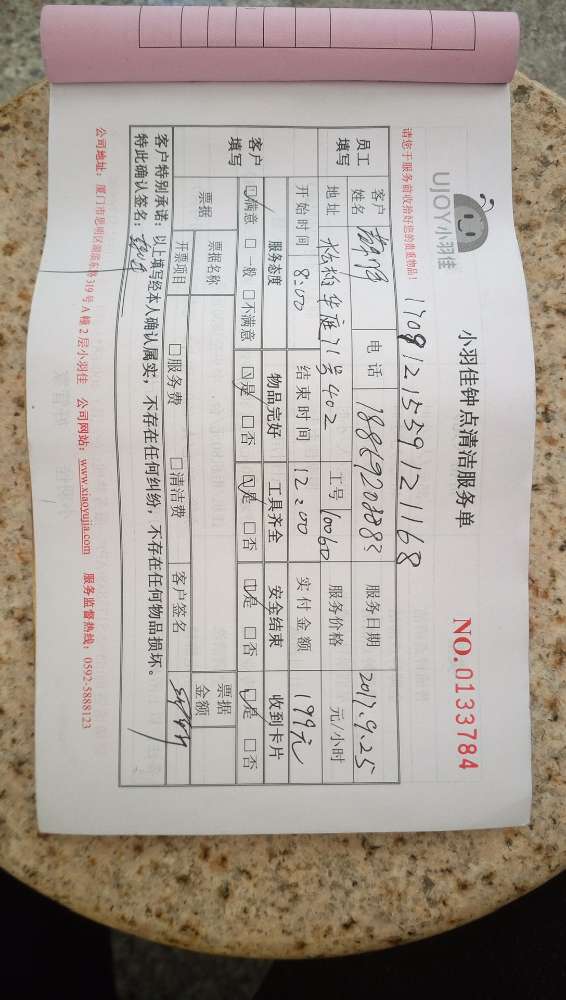 UJOY小羽佳
小羽佳钟点清洁服务单
NO.0133784
请您于服务前收拾好您的贵重物品！
1708121559121168
员工填写
客户姓名
电话 18869208883
服务日期 2017.9.25
地址 松柏华庭71号402
工号 10060
服务价格 元/小时
开始时间 8:00
结束时间 12:00
实付金额 199元
客户填写
服务态度 物品完好 工具齐全 安全结束 收到卡片
☑满意 □一般 □不满意 ☑是 □否 ☑是 □否 ☑是 □否 ☑是 □否
票据 票据名称 票据金额
开票项目 □服务费 □清洁费 客户签名
客户特别承诺：以上填写经本人确认属实，不存在任何纠纷，不存在任何物品损坏。
特此确认签名：
公司地址：厦门市思明区湖滨东路319号A幢2层小羽佳 公司网站：www.xiaoyujia.com 服务监督热线：0592-5888123